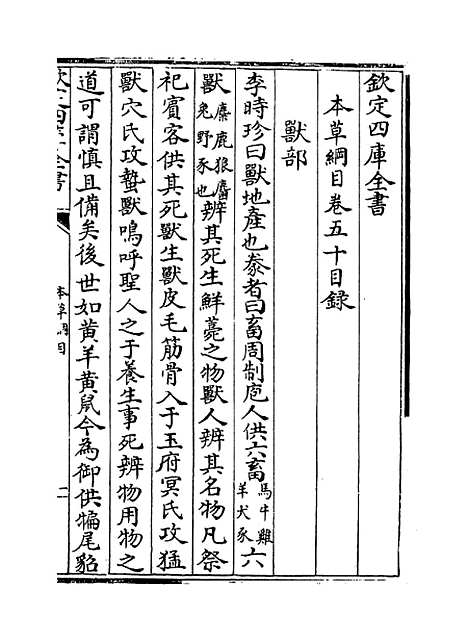 欽定四庫全書
本草綱目卷五十目録
獸部
李時珍曰獸地產也豢者曰畜周制庖人供六畜馬牛雞羊犬豕六
獸麋鹿狼麕兔野豕也辨其死生鮮薧之物獸人辨其名物凡祭
祀賓客供其死獸生獸皮毛筋骨入于玉府冥氏攻猛
獸穴氏攻蟄獸嗚呼聖人之于養生事死辨物用物之
道可謂慎且備矣後世如黄羊黄鼠今為御供犏尾貂
本草綱目